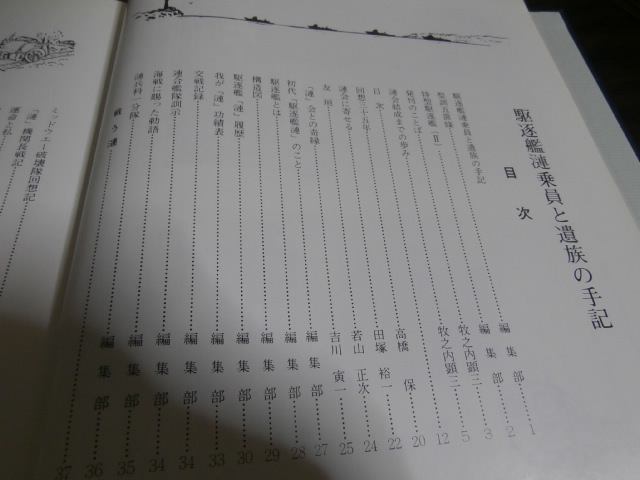 駆逐艦漣乗員と遺族の手記
目次
駆逐艦漣乗員と遺族の手記
1
編集部 2
特型駆逐艦「Ⅱ」
編集部 3
発刊のことば
牧之内顕三 5
漣会結成までの歩み
牧之内顕三 12
目次
回想三十五年
高橋保 20
漣会に寄せる
田塚裕一 22
友垣
若山正次 24
「漣」会との奇縁
吉川寅一 25
初代「駆逐艦漣」のこと
編集部 27
駆逐艦とは
編集部 28
構造図
編集部 29
駆逐艦「漣」履歴
編集部 30
我が「漣」功績表
編集部 33
交戦記録
編集部 34
連合艦隊訓示
編集部 34
海戦に賜った勅語
編集部 35
漣兵科、分隊
編集部 36
戦う漣
37
ミッドウェー破壊隊回想記
「漣」機関長戦記
運命と私